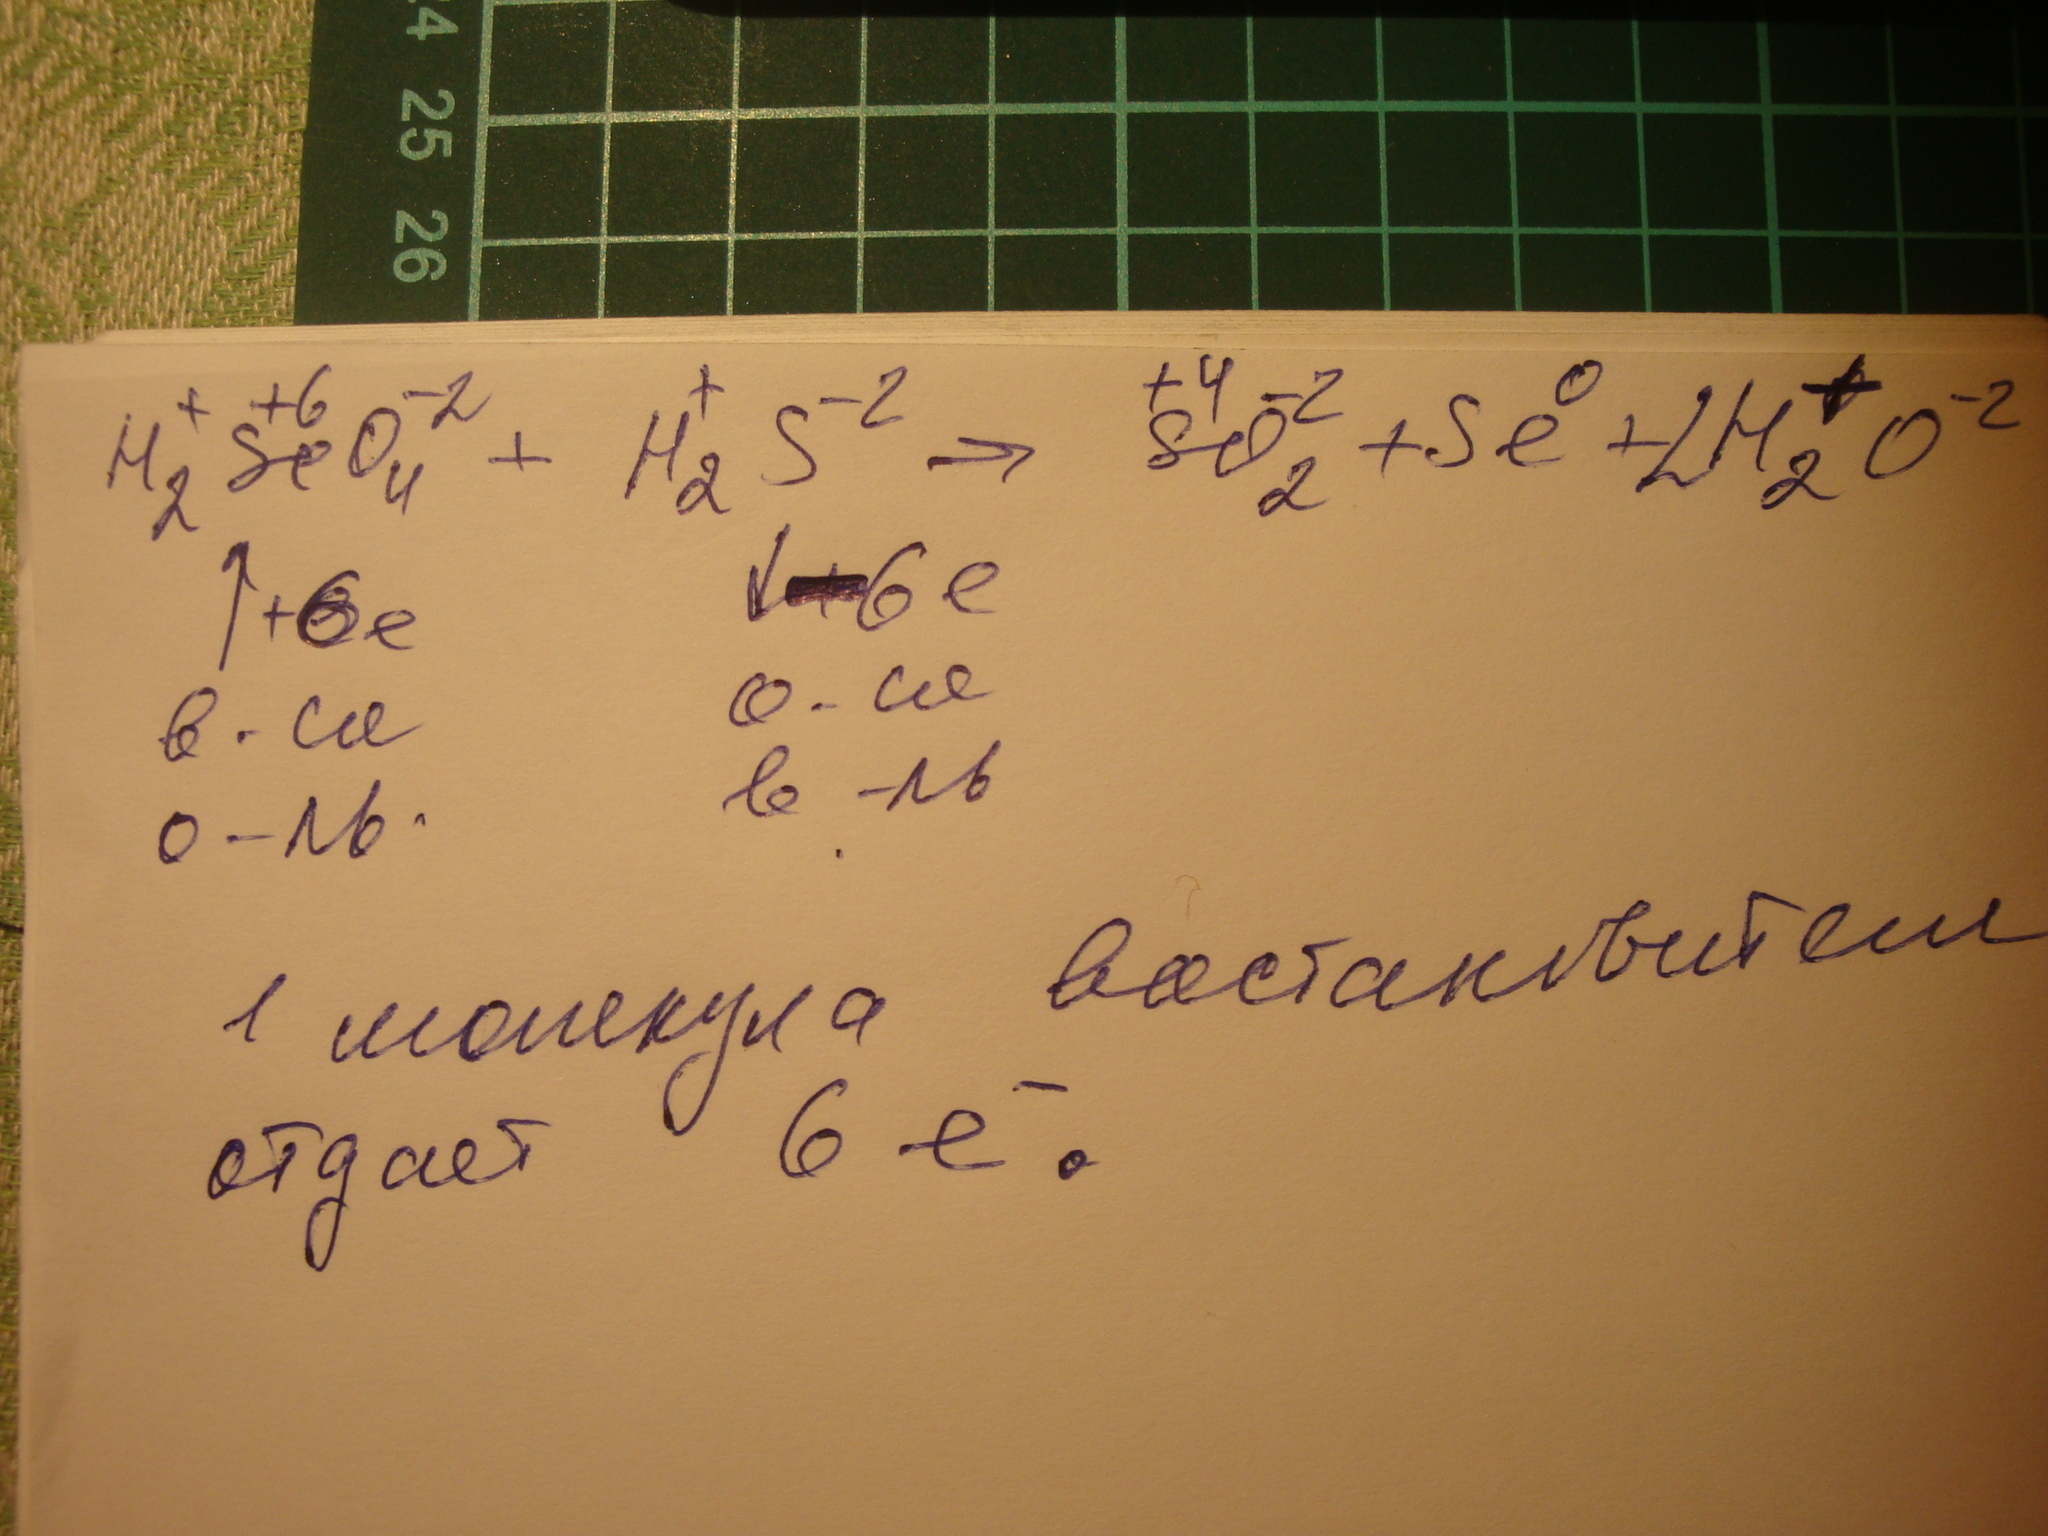 24
25
26
H₂⁺Se⁺⁶O₄⁻² + H₂⁺S⁻² → S⁺⁴O₂⁻² + Se⁰ + 2H₂⁺O⁻²
↑+6e ↓6e
в-ся о-ся
о-ль. в-ль
1 молекула востановители
отдает 6 e⁻.